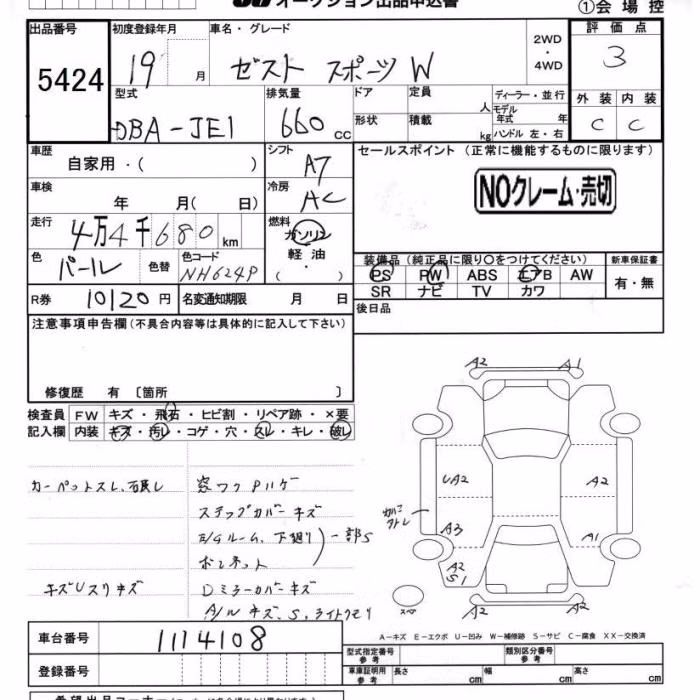 オークション出品申込書
①会場控
出品番号
5424
初度登録年月
19 月
車名・グレード
ゼスト スポーツ W
2WD
・
4WD
評価点
3
型式
DBA-JE1
排気量
660 cc
ドア
形状
定員 人
積載 kg
ディーラー・並行
モデル年式 年
ハンドル 左・右
外装 内装
C C
車歴
自家用・( )
シフト
A7
セールスポイント (正常に機能するものに限ります)
NOクレーム・売切
車検
年 月( 日)
冷房
AC
走行
4万4千680 km
燃料
ガソリン
軽油
( )
色
パール
色替
色コード
NH624P
装備品 (純正品に限り〇をつけてください)
新車保証書
PS PW ABS エアB AW
有・無
SR ナビ TV カワ
R券 10120円
名変通知期限 月 日
後日品
注意事項申告欄(不具合内容等は具体的に記入して下さい)
修復歴 有 〔箇所 〕
検査員 FW キズ・飛石・ヒビ割・リペア跡・×要
記入欄 内装 キズ・汚レ・コゲ・穴・スレ・キレ・破レ
カーペットスレ、
窓ワクPハゲ
ステップカバーキズ
E/Gルーム、下廻り 一部S
ボンネット
キズUスリキズ
Dミラーカバーキズ
A/Wキズ、S、ライトクモリ
A2 A1
UA2 A2
A3 A1
A2
S1
A2 A2
スペ
A－キズ E－エクボ U－凹み W－補修跡 S－サビ C－腐食 XX－交換済
車台番号
1114108
登録番号
型式指定番号
参考
類別区分番号
参考
車庫証明用
参考
長さ cm 幅 cm 高さ cm